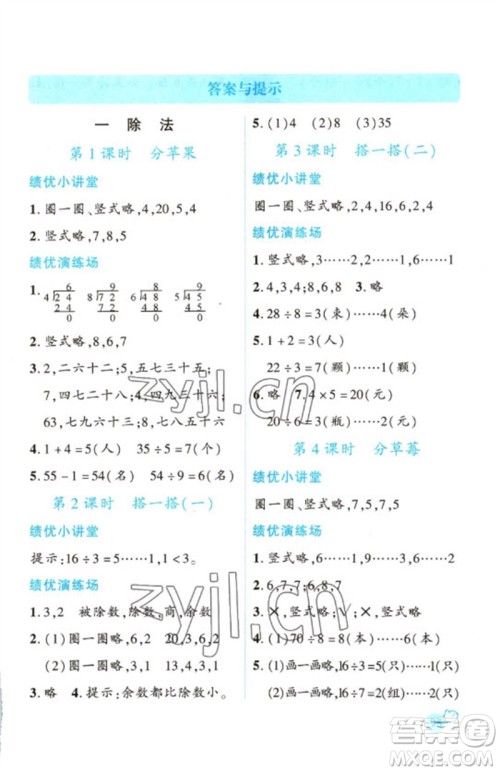 答案与提示
一 除 法
第1课时 分苹果
绩优小讲堂
1.圈一圈、竖式略,4,20,5,4
2.竖式略,7,8,5
绩优演练场
1. 6 9 8
4)24 8)72 6)48
24 72 48
0 0 0
2.竖式略,8,6,7
3.2,二六十二;5,五七三十五;
63,七九六十三;7,七九六十三
4.1+4=5(人) 35÷5=7(人)
5.55-1=54(名) 54÷9=6(名)
第2课时 搭一搭(一)
绩优小讲堂
提示:16÷3=5……1,1<3。
绩优演练场
1.3,2 被除数,除数,商,余数
2.(1)圈一圈略,6,2
(2)圈一圈略,3,1
3.略 4.提示:余数都比除数小。
5.(1)4 (2)8 (3)35
第3课时 搭一搭(二)
绩优小讲堂
圈一圈、竖式略,4,16,6,2,4
绩优演练场
1.竖式略,7……2,2……1,6……2
2.4,4,4 3.略
4.28÷8=3(束)……4(朵)
5.13÷2=6(颗)……1(颗)
22÷3=7(颗)……1(颗)
6.略 7.4×5=20(元)
20÷3=6(瓶)……2(元)
第4课时 分草莓
绩优小讲堂
圈一圈、竖式略,7,5,7,5
绩优演练场
1.竖式略,6……1,9……1,5……4
2.6,7,7;6,8;7,6
3.×,竖式略;√;×,竖式略
4.(1)70÷8=8(本)……6(本)
5.(1)画一画略,16÷3=5(只)……1(只)
(2)画一画略,16÷7=2(组)……2(只)
zyjl.cn
zyjl.cn
答案圈
MXQE.COM